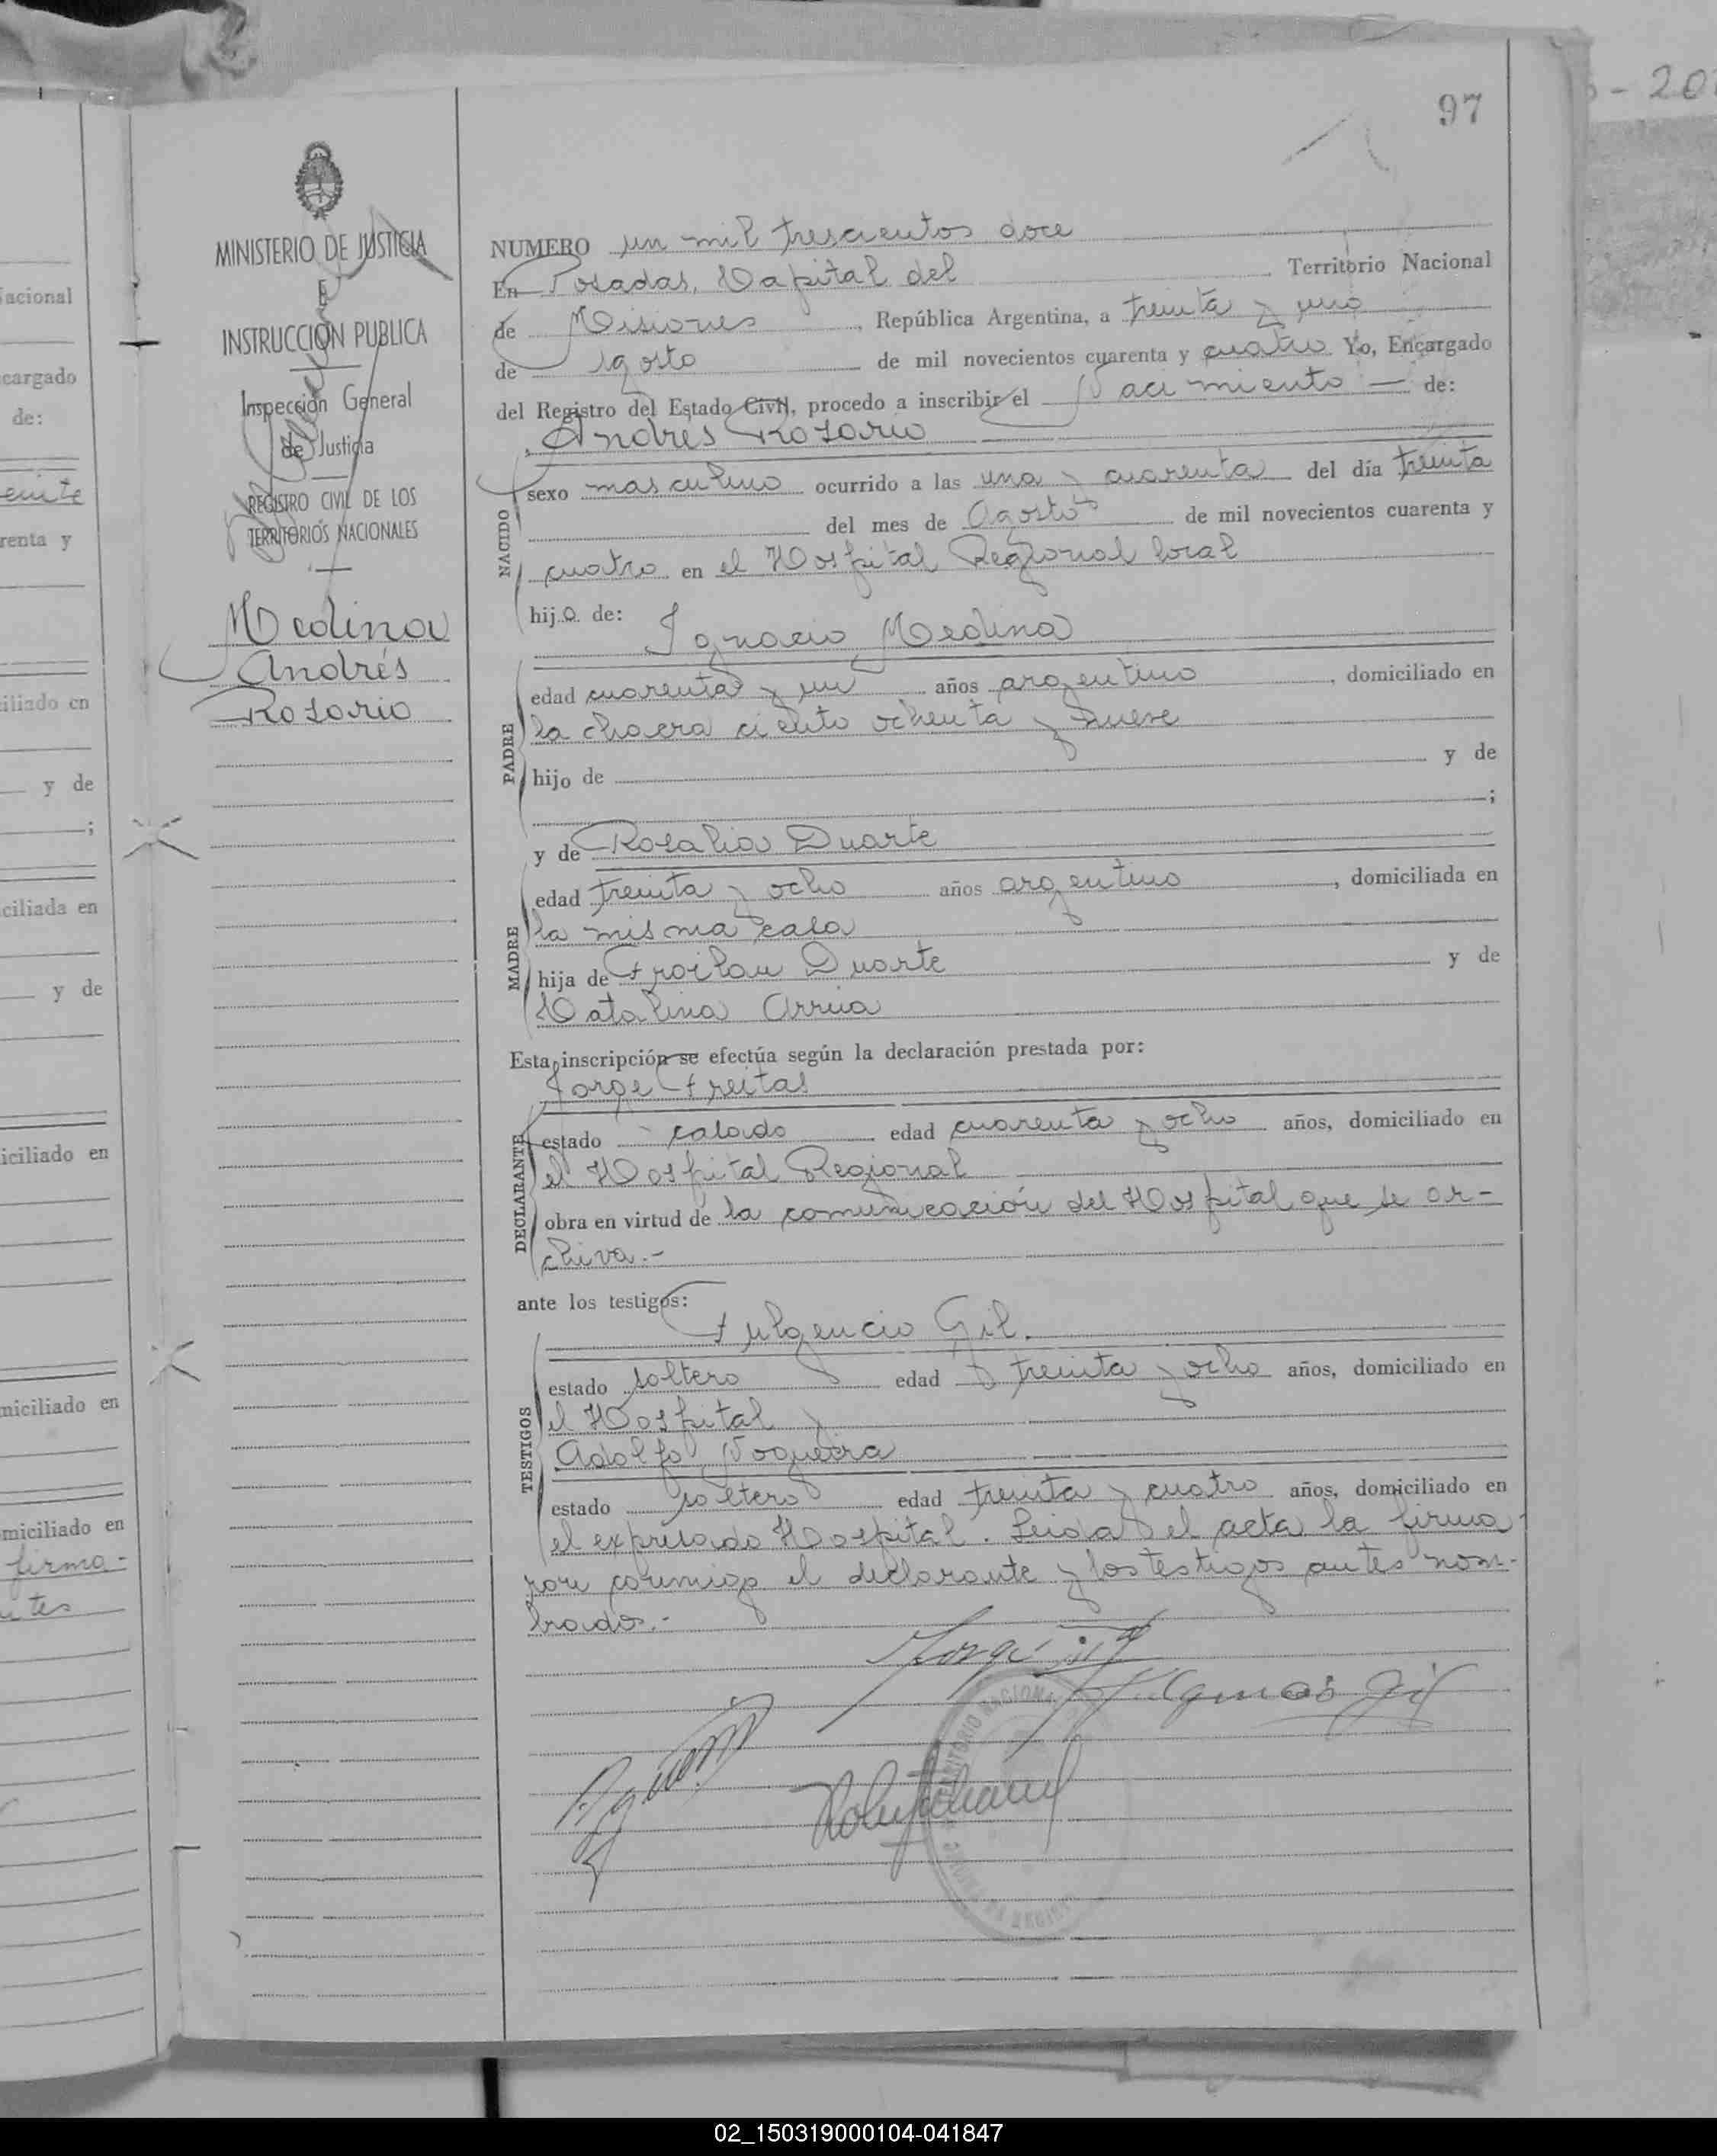 97
MINISTERIO DE JUSTICIA
E
INSTRUCCION PUBLICA
Inspección General
de Justicia
REGISTRO CIVIL DE LOS
TERRITORIOS NACIONALES
Medina
Andrés
Rosario
NUMERO un mil trescientos doce
En Posadas, Capital del Territorio Nacional
de Misiones, República Argentina, a treinta y uno
de Agosto de mil novecientos cuarenta y cuatro Yo, Encargado
del Registro del Estado Civil, procedo a inscribir el Nacimiento — de:
Andrés Rosario
NACIDO
sexo masculino ocurrido a las una y cuarenta del día treinta
del mes de Agosto de mil novecientos cuarenta y
cuatro en el Hospital Regional local
hijo de:
Ignacio Medina
PADRE
edad cuarenta y un años argentino, domiciliado en
la chacra ciento ochenta y nueve
hijo de y de
;
y de Rosalia Duarte
MADRE
edad treinta y ocho años argentino, domiciliada en
la misma casa
hija de Froilan Duarte y de
Catalina Arrua
Esta inscripción se efectúa según la declaración prestada por:
Jorge Freitas
DECLARANTE
estado casado edad cuarenta y ocho años, domiciliado en
el Hospital Regional
obra en virtud de la comunicación del Hospital que se ar-
chiva.-
ante los testigos:
Fulgencio Gil.
TESTIGOS
estado soltero edad treinta y ocho años, domiciliado en
el Hospital y
Adolfo Nogueira
estado soltero edad treinta y cuatro años, domiciliado en
el expresado Hospital. Leida el acta la firma-
ron conmigo el declarante y los testigos antes nom-
brados.-
acional
cargado
de:
renta y
iliado en
y de
;
ciliada en
y de
iciliado en
miciliado en
miciliado en
firma-
tes
02_150319000104-041847